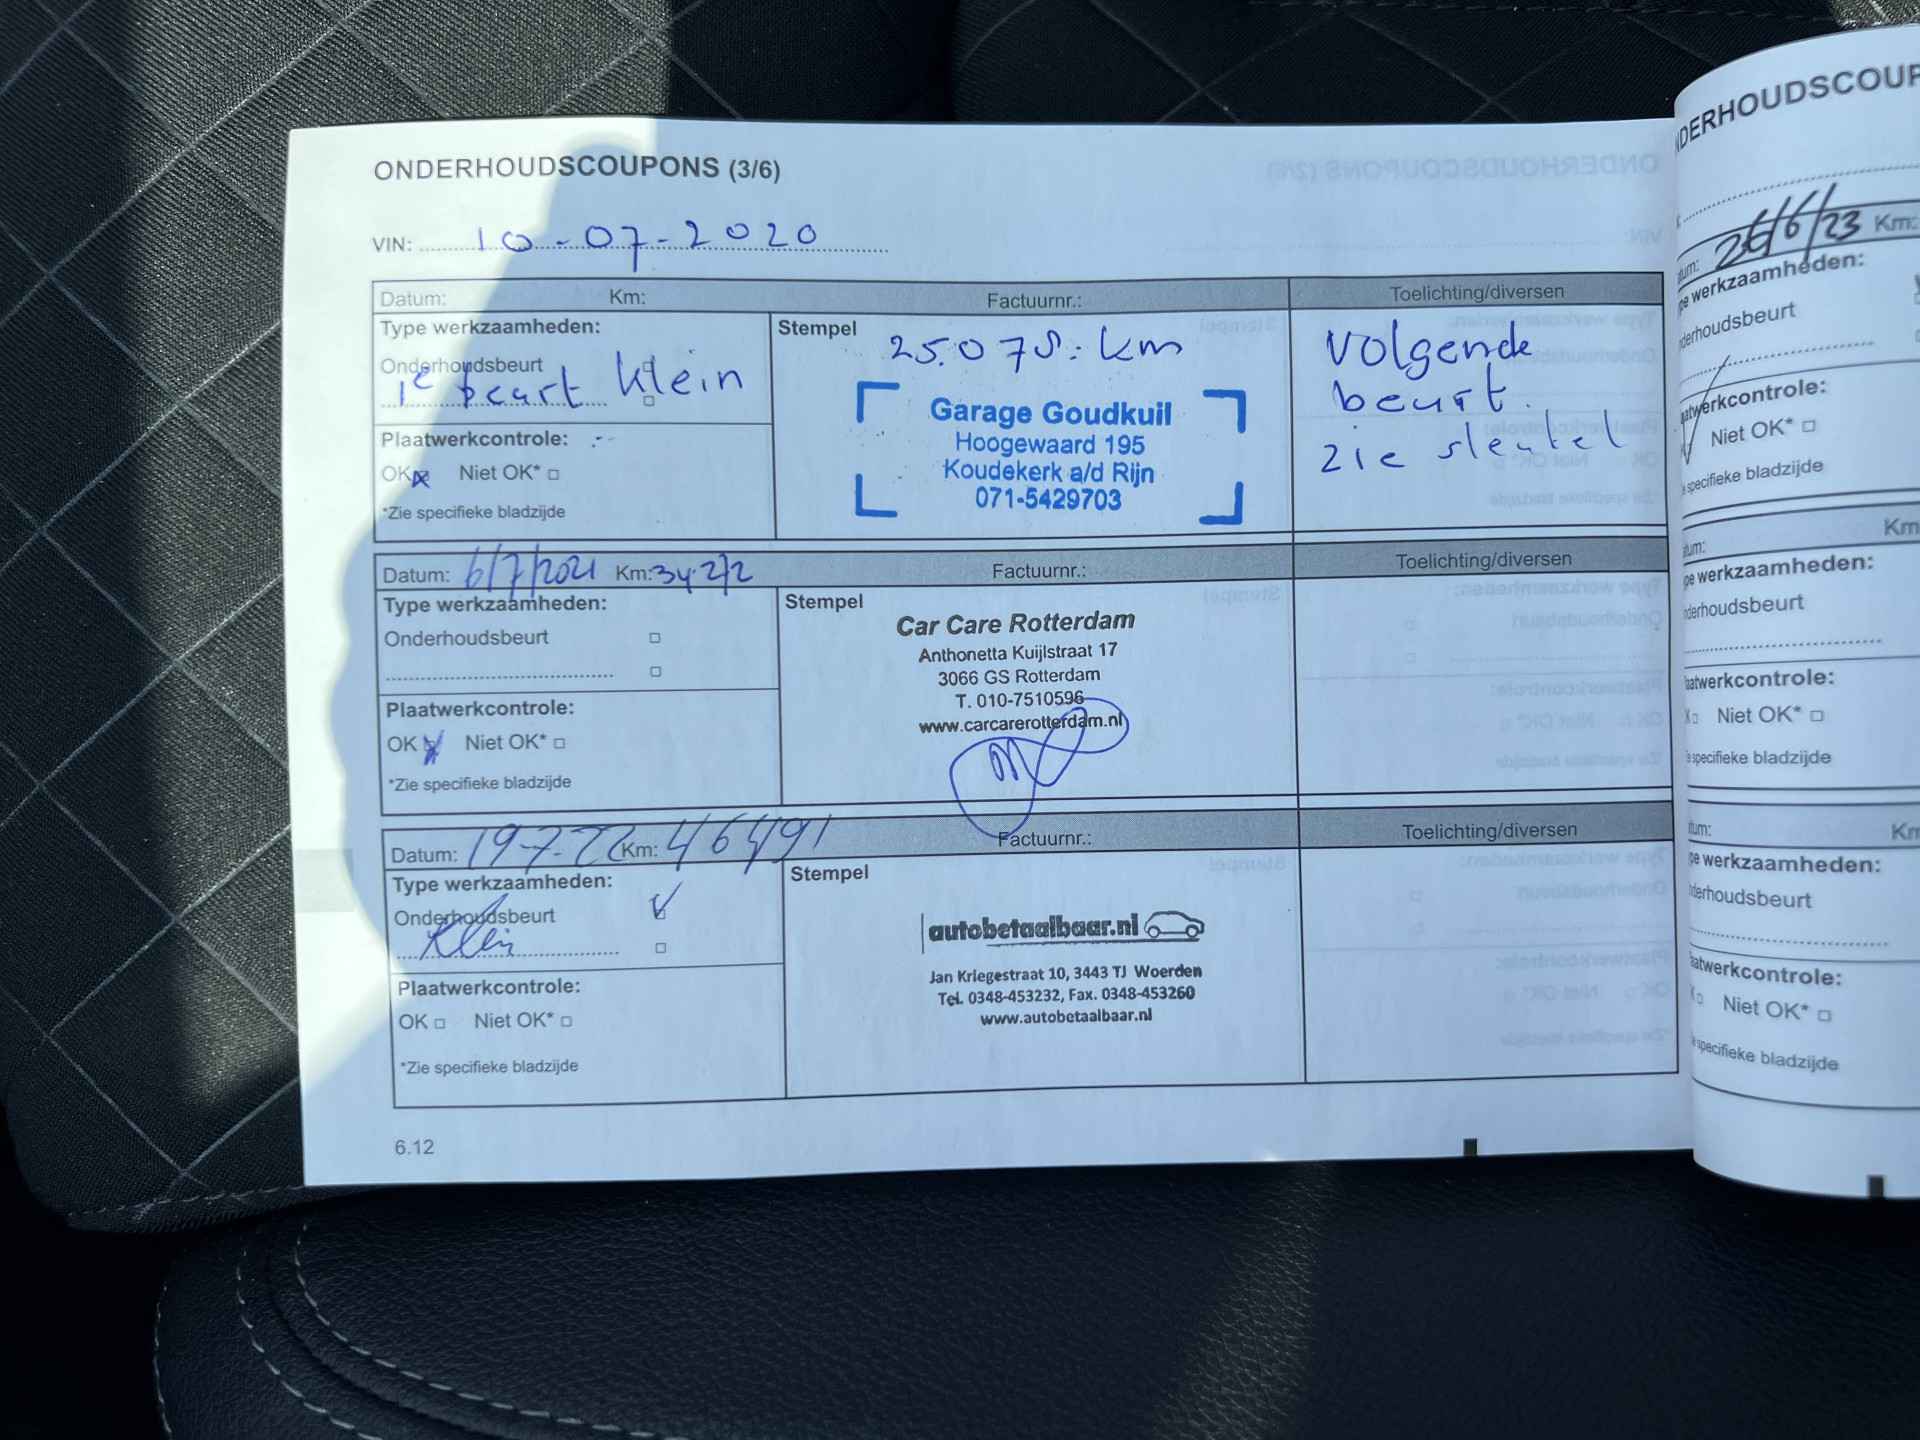 ONDERHOUDSCOUPONS (3/6)
VIN: 10-07-2020
Datum: Km: Factuurnr.: Toelichting/diversen
Type werkzaamheden:
Onderhoudsbeurt
1e beurt klein
Plaatwerkcontrole:
OK Niet OK*
*Zie specifieke bladzijde
Stempel
25.075. km
Garage Goudkuil
Hoogewaard 195
Koudekerk a/d Rijn
071-5429703
volgende
beurt.
zie sleutel
Datum: 6/7/2021 Km: 34.212 Factuurnr.: Toelichting/diversen
Type werkzaamheden:
Onderhoudsbeurt
Plaatwerkcontrole:
OK Niet OK*
*Zie specifieke bladzijde
Stempel
Car Care Rotterdam
Anthonetta Kuijlstraat 17
3066 GS Rotterdam
T. 010-7510596
www.carcarerotterdam.nl
Datum: 19-7-22 Km: 46491 Factuurnr.: Toelichting/diversen
Type werkzaamheden:
Onderhoudsbeurt
Klein
Plaatwerkcontrole:
OK Niet OK*
*Zie specifieke bladzijde
Stempel
autobetaalbaar.nl
Jan Kriegestraat 10, 3443 TJ Woerden
Tel. 0348-453232, Fax. 0348-453260
www.autobetaalbaar.nl
6.12
NDERHOUDSCOUP
26/6/23 Km:
pe werkzaamheden:
nderhoudsbeurt
aatwerkcontrole:
Niet OK*
e specifieke bladzijde
tum: Km
pe werkzaamheden:
nderhoudsbeurt
aatwerkcontrole:
Niet OK*
e specifieke bladzijde
tum: Km
pe werkzaamheden:
nderhoudsbeurt
aatwerkcontrole:
Niet OK*
e specifieke bladzijde